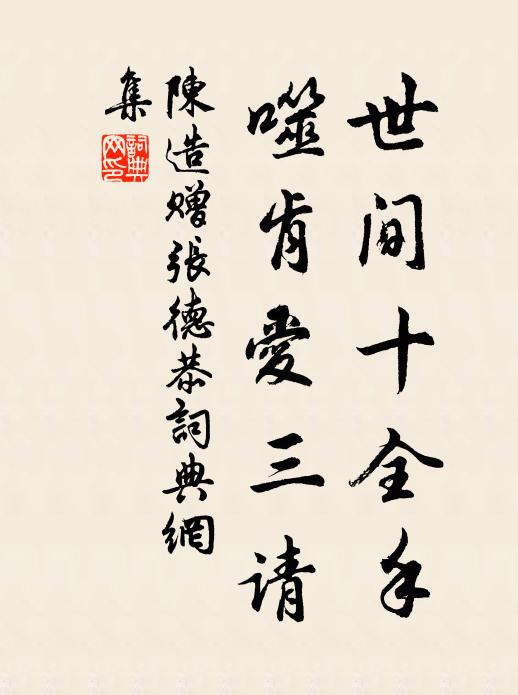 世间十全手
噬肯爱三请
陳造赠張德恭詞典網
集
詞典
网印